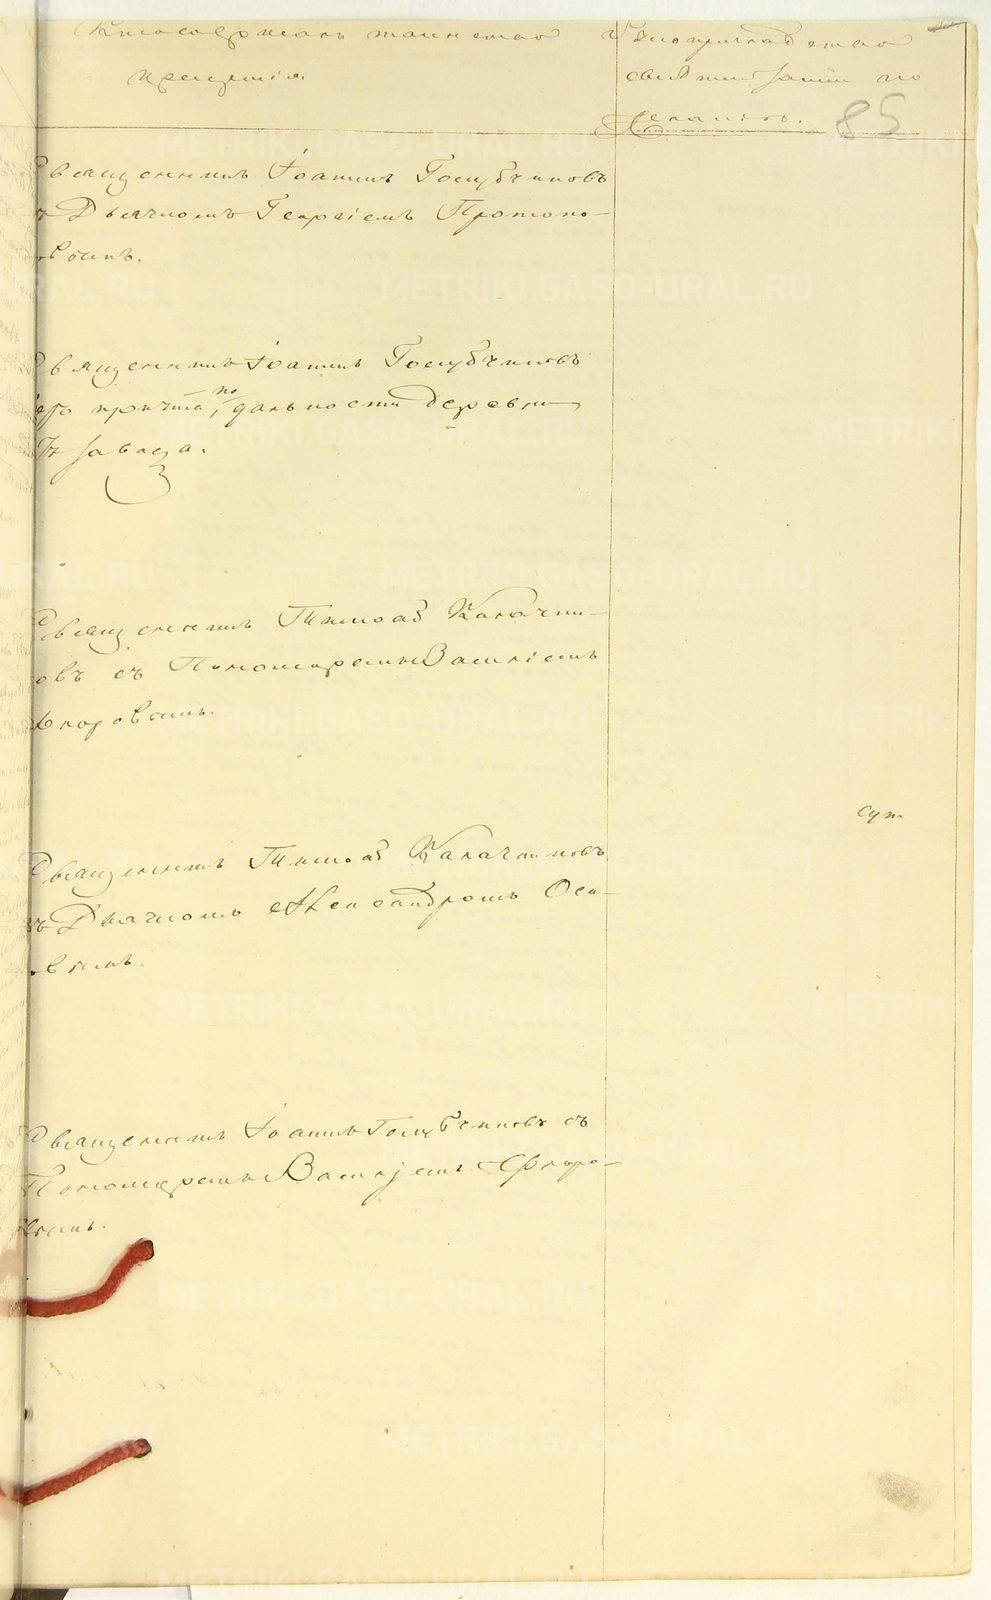 Кто совершалъ таинство
крещенія.
Рукоприкладство
свидѣтелей записи по
желанію.
85
Священникъ Іоаннъ Голубчиковъ
съ Дьячкомъ Георгіемъ Протопо-
Священникъ Іоаннъ Голубчиковъ
безъ причта, по дальности деревни
отъ завода.
Священникъ Тимоѳей Калачни-
ковъ съ Пономаремъ Василіемъ
Священникъ Тимоѳей Калачниковъ
съ Дьячкомъ Александромъ
Священникъ Іоаннъ Голубчиковъ съ
Пономаремъ Василіемъ
METRIKI.GASO-URAL.RU